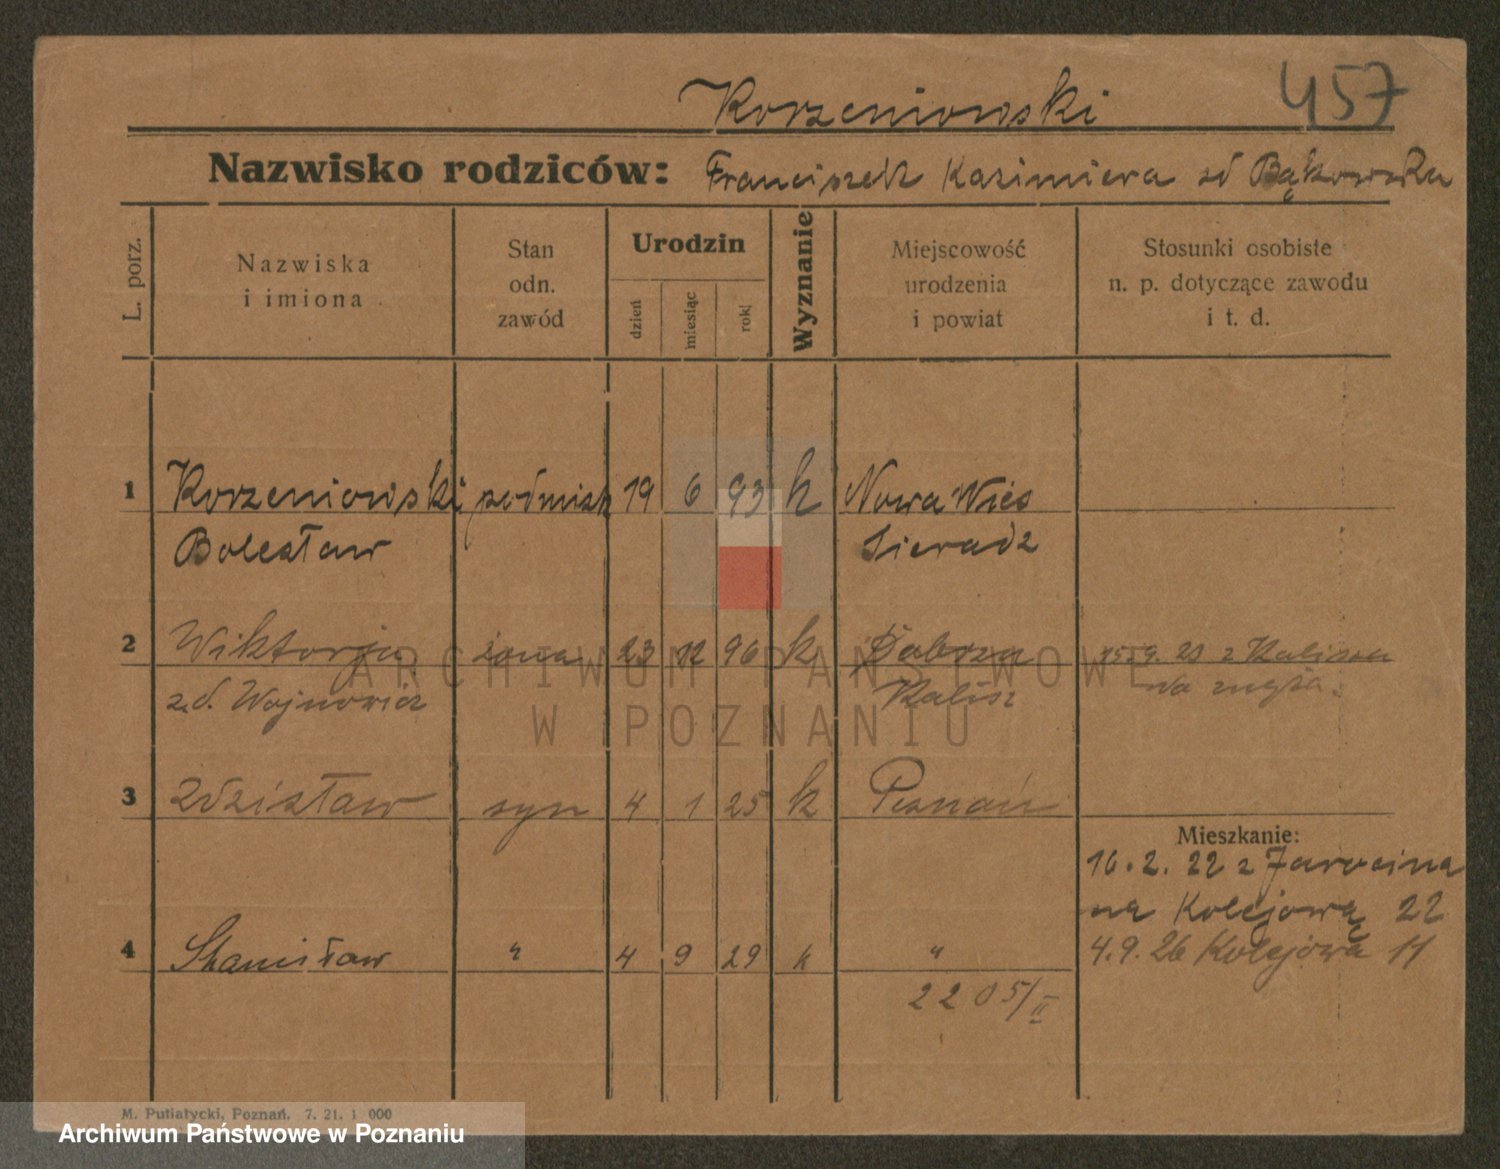 457
Korzeniowski
Nazwisko rodziców: Franciszek Kazimiera zd Bąkowska
L. porz.
Nazwiska
i imiona
Stan
odn.
zawód
Urodzin
dzień
miesiąc
rok
Wyznanie
Miejscowość
urodzenia
i powiat
Stosunki osobiste
n. p. dotyczące zawodu
i t. d.
1 Korzeniowski 19 6 93 k Nowa Wieś
Bolesław Sieradz
2 Wiktorja żona 23 12 96 k 23 z Kalisza
z d. Wojnowicz Kalisz na męża
3 Zdzisław syn 4 1 25 k Poznań
Mieszkanie:
16.2.22 z Jarocina
na Kolejową 22
4 Stanisław " 4 9 29 k " 4.9.26 Kolejowa 11
2205/II
M. Putiatycki, Poznań. 7. 21. 1 000
ARCHIWUM PAŃSTWOWE
W POZNANIU
Archiwum Państwowe w Poznaniu